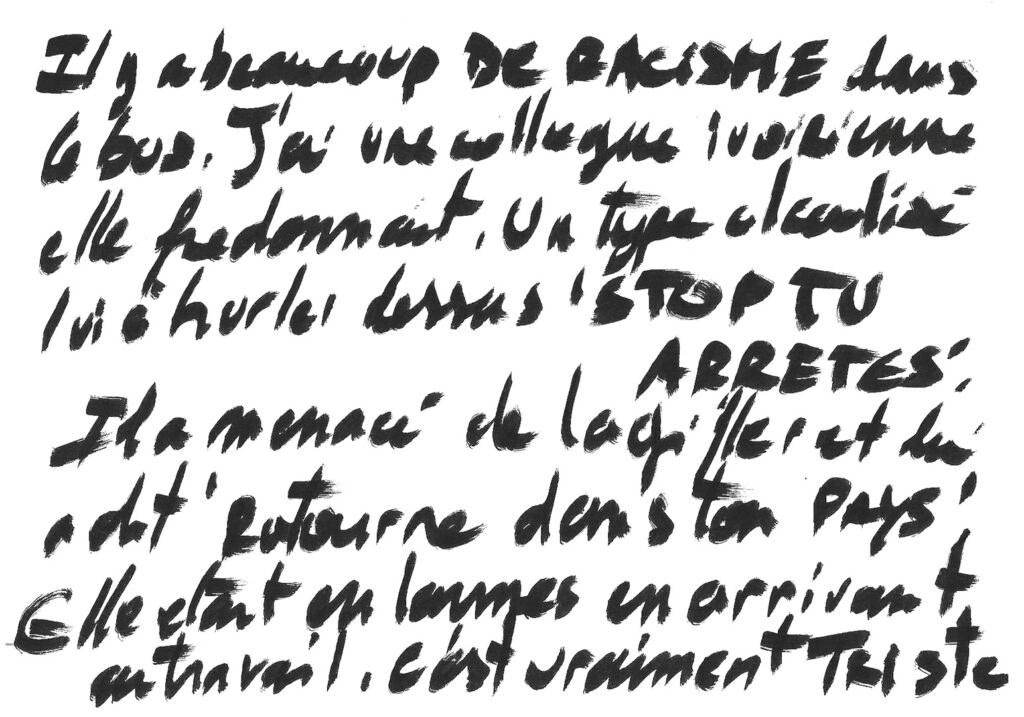 Il y a beaucoup DE RACISME dans
le bus. J'ai une collegue ivoirienne
elle fredonnait. Un type alcoolisé
lui à hurler dessus 'STOP TU
ARRETES'.
Il a menacé de la gifler et lui
a dit 'Retourne dans ton PAYS'.
Elle etait en larmes en arrivant
au travail. C'est vraiment TRISte